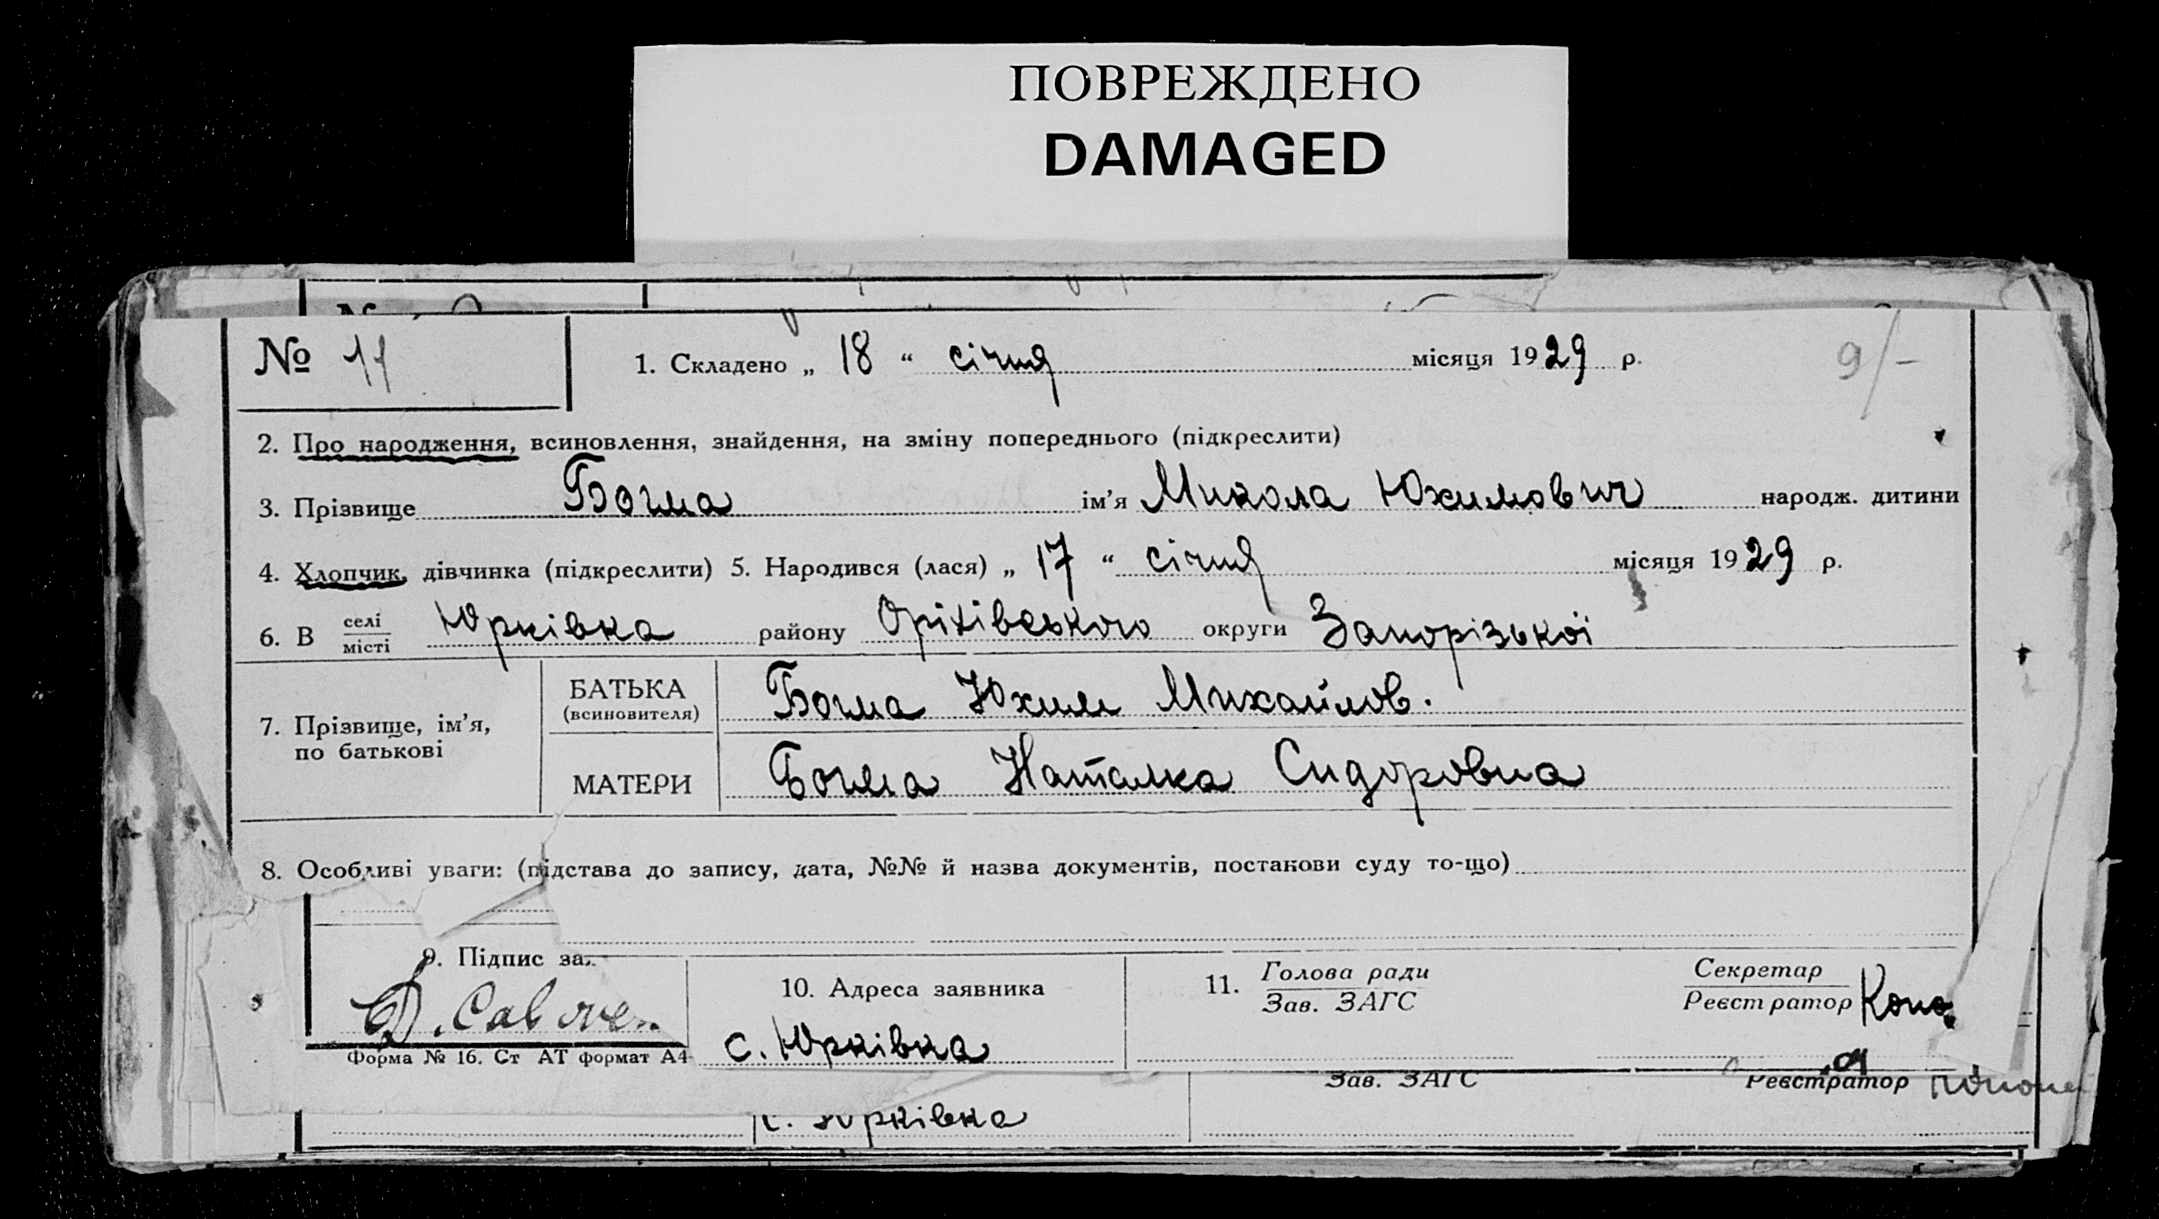 ПОВРЕЖДЕНО
DAMAGED
№ 11
1. Складено „ 18 “ січня місяця 1929 р.
9/-
2. Про народження, всиновлення, знайдення, на зміну попереднього (підкреслити)
3. Прізвище Богма ім’я Микола Юхимович народж. дитини
4. Хлопчик, дівчинка (підкреслити) 5. Народився (лася) „ 17 “ січня місяця 1929 р.
6. В селі місті Юрківка району Оріхівського округи Запорізької
7. Прізвище, ім’я, по батькові
БАТЬКА (всиновителя) Богма Юхим Михайлов.
МАТЕРИ Богма Наталка Сидоровна
8. Особливі уваги: (підстава до запису, дата, №№ й назва документів, постанови суду то-що)
9. Підпис за
10. Адреса заявника
с. Юрківка
11. Голова ради
Зав. ЗАГС
Секретар
Реєстратор
Форма № 16. Ст АТ формат А4
Зав. ЗАГС
Реєстратор
с. Юрківка